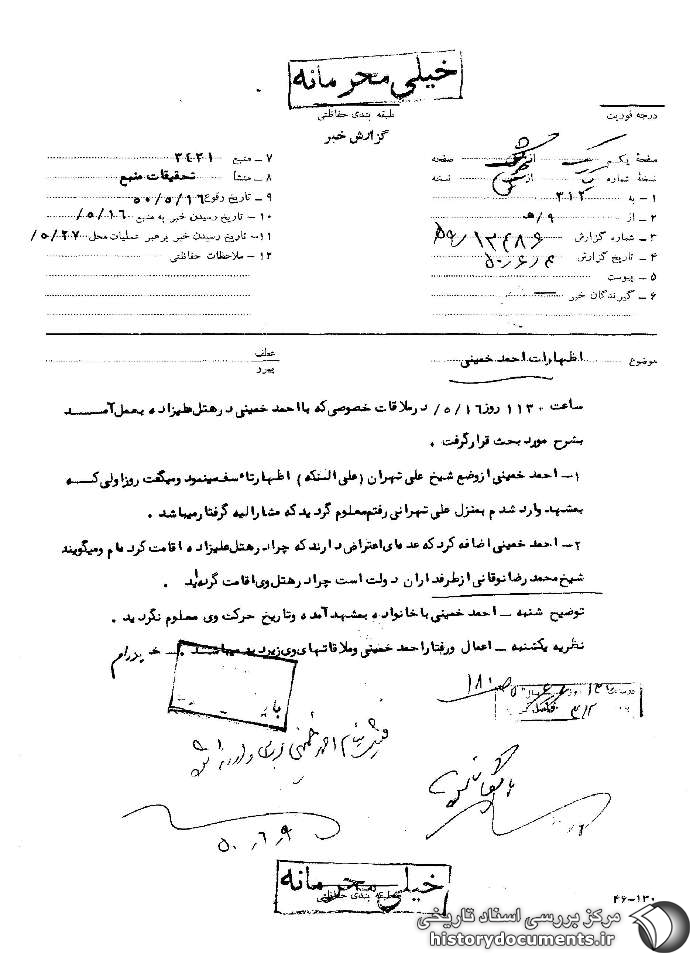 خیلی محرمانه
طبقه بندی حفاظتی
گزارش خبر
درجه فوریت
صفحه یکم از صفحه
نسخه شماره از نسخه
۱ـ به ۳۱۲
۲ـ از ۹/ه
۳ـ شماره گزارش ۱۳۴۸۶/ه۹
۴ـ تاریخ گزارش ۵۰/۶/۴
۵ـ پیوست
۶ـ گیرندگان خبر
۷ـ منبع ۳۴۲۱
۸ـ منشأ تحقیقات منبع
۹ـ تاریخ وقوع ۵۰/۵/۱۶
۱۰ـ تاریخ رسیدن خبر به منبع ۵/۱۶/
۱۱ـ تاریخ رسیدن خبر برهبر عملیات محل ۵/۲۷/
۱۲ـ ملاحظات حفاظتی
موضوع اظهارات احمد خمینی
عطف
پیرو
ساعت ۱۱۳۰ روز ۵/۱۶/ در ملاقات خصوصی که با احمد خمینی در هتل علیزاده بعمل آمد
بشرح مورد بحث قرار گرفت .
۱ـ احمد خمینی از وضع شیخ علی تهران (علی المنکه) اظهار تاءسف مینمود و میگفت روز اولی که
بمشهد وارد شدم بمنزل علی تهرانی رفتم معلوم گردید که مشارالیه گرفتار میباشد .
۲ـ احمد خمینی اضافه کرد که عده‌ای اعتراض دارند که چرا در هتل علیزاده اقامت کرده‌ام و میگویند
شیخ محمد رضا نوقانی از طرفداران دولت است چرا در هتل وی اقامت کرده‌اید .
توضیح شنبه ـ احمد خمینی با خانواده بمشهد آمده و تاریخ حرکت وی معلوم نگردید .
نظریه یکشنبه ـ اعمال و رفتار احمد خمینی و ملاقاتهای وی زیر دید میباشد .
۳۱۲
بایگانی شود
۵۰/۶/۹
خیلی محرمانه
طبقه بندی حفاظتی
۴۶-۱۳۰
مرکز بررسی اسناد تاریخی
historydocuments.ir